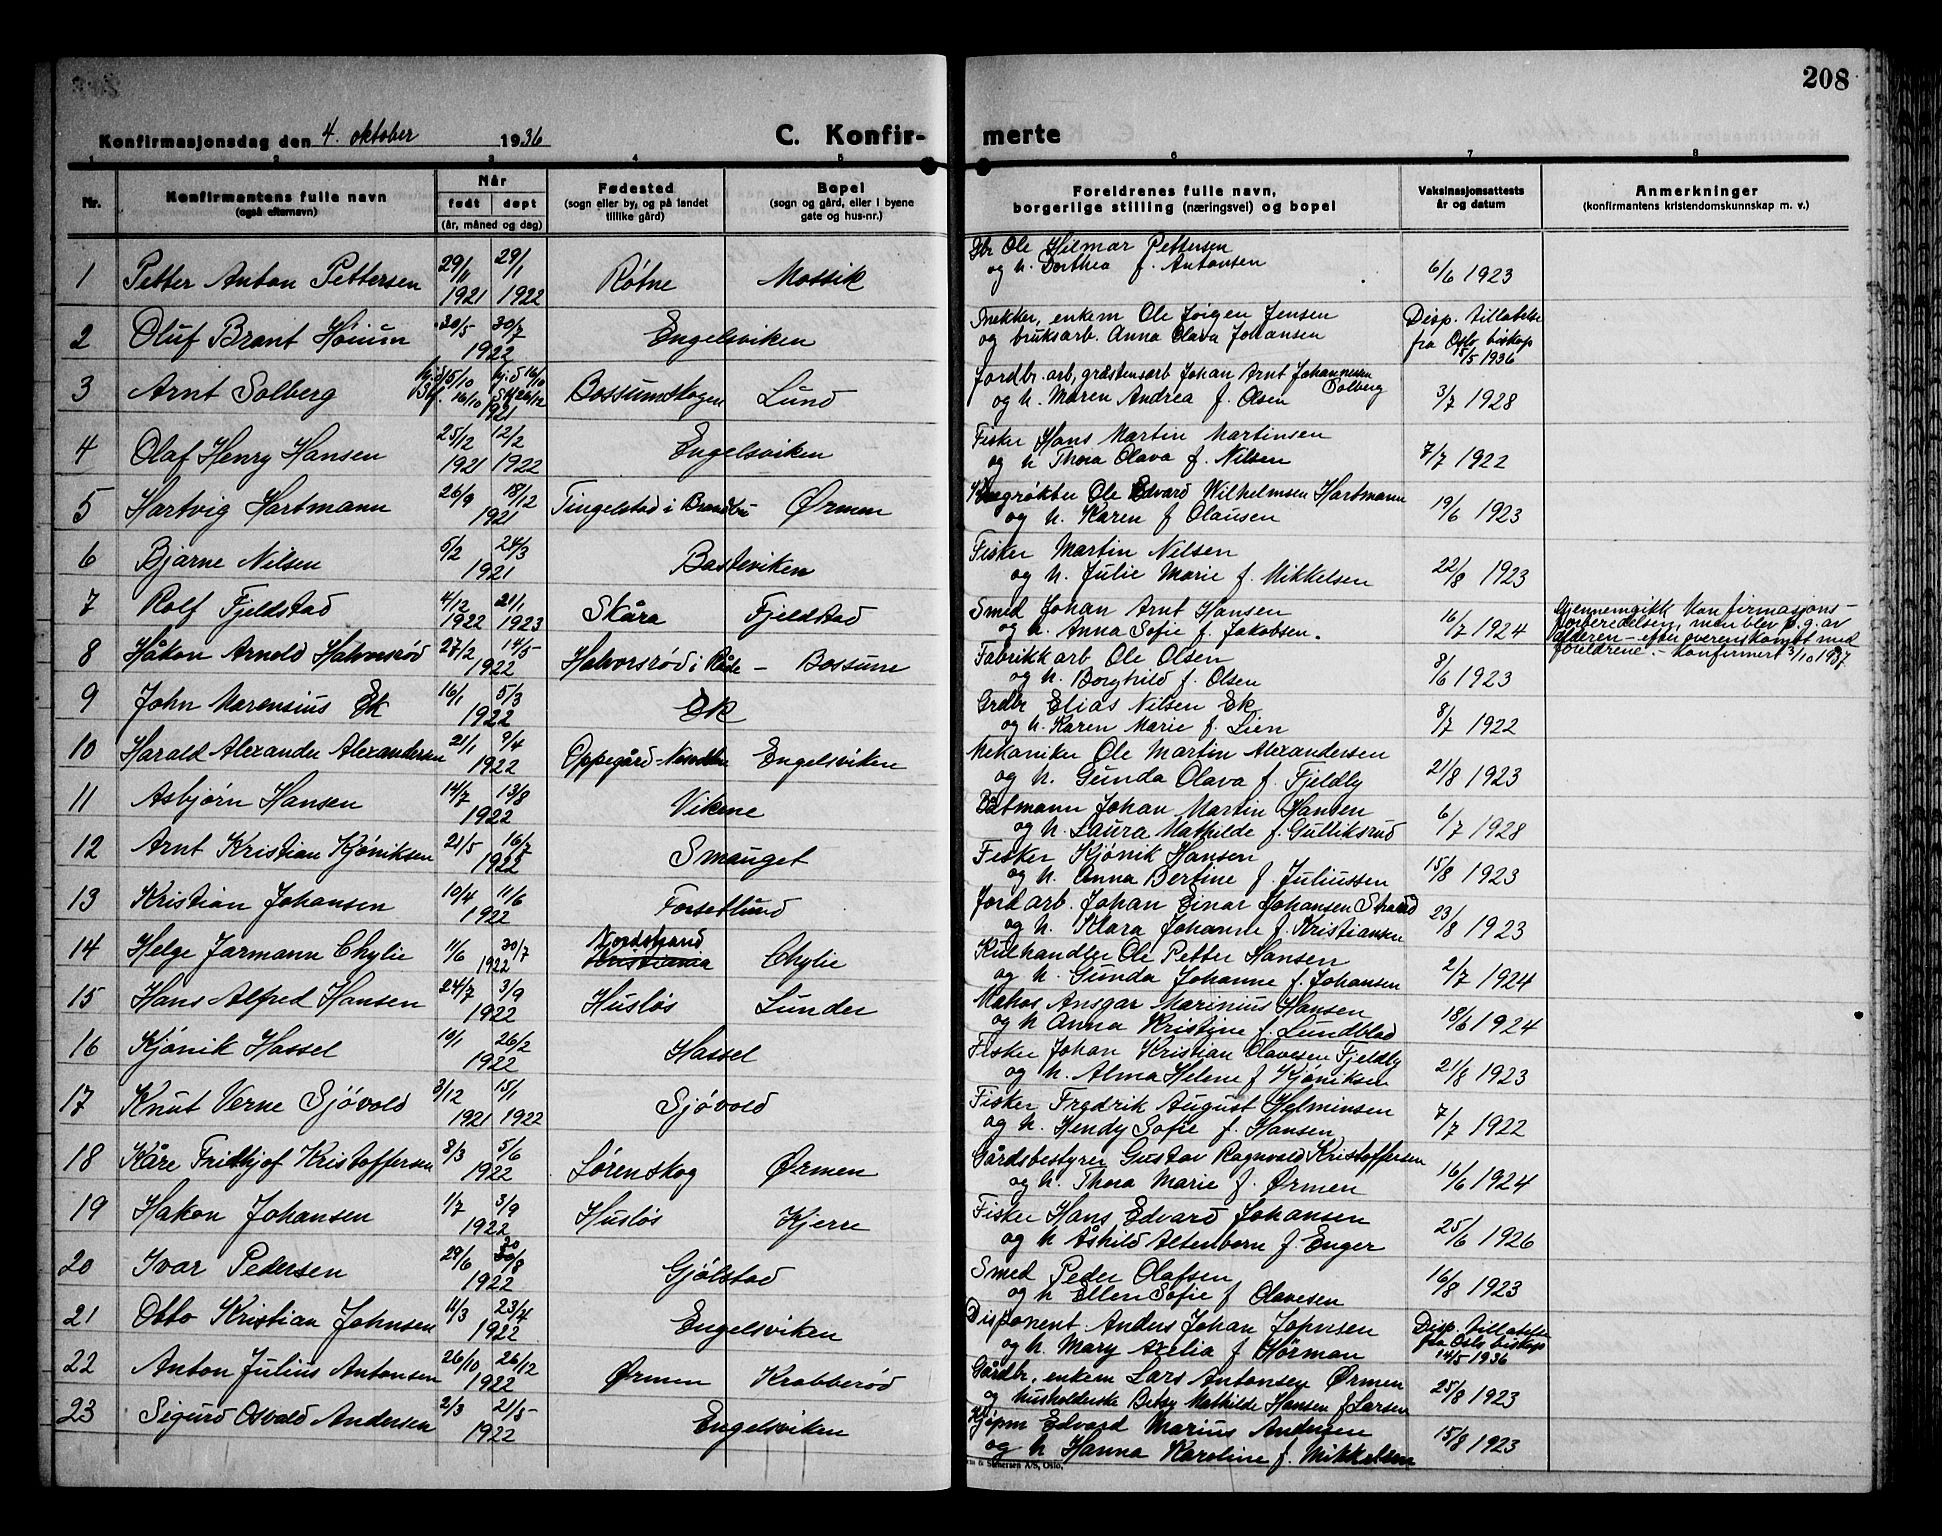 208
Konfirmasjonsdag den 4. oktober 1936
C. Konfirmerte
1 2 3 4 5 6 7 8
Nr.
Konfirmantens fulle navn
(også efternavn)
Når
født døpt
(år, måned og dag)
Fødested
(sogn eller by, og på landet
tillike gård)
Bopel
(sogn og gård, eller i byene
gate og hus-nr.)
Foreldrenes fulle navn,
borgerlige stilling (næringsvei) og bopel
Vaksinasjonsattests
år og datum
Anmerkninger
(konfirmantens kristendomskunnskap m. v.)
1 Petter Anton Pettersen 29/11 1921 29/1 1922 Røtne Mossik
Gbr Ole Hilmar Pettersen
og h. Dorthea f. Antonsen 6/6 1923
2 Oluf Brant Høium 30/5 30/7 1922 Engelsviken
Snekker, enkem Ole Jørgen Jensen
og bruksarb. Anna Olava Johansen
Disp. tillatelse
fra Oslo biskop
15/5 1936
3 Arnt Solberg hj.d. 16/10 1921 Bossumskogen Lund
Jordbr. arb, gråstensarb Johan Arnt Johannesen Solberg
og h. Maren Andrea f. Olsen 3/7 1928
4 Olaf Henry Hansen 25/12 1921 12/2 1922 Engelsviken
Fisker Hans Martin Martinsen
og h Thora Olava f. Nilsen 7/7 1922
5 Hartvig Hartmann 26/9 18/12 1921 Tingelstad i Brandbu Ørmen
Ole Edvard Wilhelmsen Hartmann
og h. Karen f Olausen 19/6 1923
6 Bjarne Nilsen 5/2 24/3 1921 Basteviken
Fisker Martin Nilsen
og h. Julie Marie f. Mikkelsen 22/8 1923
7 Rolf Fjeldstad 4/12 1922 21/1 1923 Skåra Fjeldstad
Smed Johan Arnt Hansen
og h. Anna Sofie f. Jakobsen. 16/7 1924
Gjennemgikk konfirmasjons-
forberedelsen, men blev p.g.av
alderen - efter overenskomst med
foreldrene. - Konfirmert 3/10 1937
8 Håkon Arnold Halvorsrød 27/2 14/5 1922 Halvorsrød i Råde - Bossum
Fabrikkarb Ole Olsen
og h. Borghild f. Olsen 8/6 1923
9 John Marensius Ek 16/1 5/3 1922 Ek
Grdbr Elias Nilsen Ek
og h. Karen Marie f. Lien 8/7 1922
10 Harald Alexander Alexandersen 21/1 9/4 1922 Oppegård-Nesodden Engelsviken
Mekaniker Ole Martin Alexandersen
og h. Gunda Olava f. Fjeldly 21/8 1923
11 Asbjørn Hansen 14/7 13/8 1922 Vikene
Båtmann Johan Martin Hansen
og h. Laura Mathilde f. Gulliksrud 6/7 1928
12 Arnt Kristian Kjøniksen 21/5 16/7 1922 Smauget
Fisker Kjønik Hansen
og h. Anna Bertine f. Juliussen 15/8 1923
13 Kristian Johansen 10/4 11/6 1922 Forsetlund
Jordarb. Johan Einar Johansen Strand
og h. Klara Johanne f. Kristiansen 23/8 1923
14 Helge Jarmann Chylie 11/6 30/7 1922 Nordstrand Kristiania Chylie
Kulhandler Ole Petter Hansen
og h. Gunda Johanne f. Johansen 2/7 1924
15 Hans Alfred Hansen 24/7 3/9 1922 Husløs Lunder
Matros Ansgar Marinius Hansen
og h Anna Kristine f. Lundblad 18/6 1924
16 Kjønik Hassel 10/1 26/2 1922 Hassel
Fisker Johan Kristian Olavesen Fjeldly
og h. Alma Helene f Kjøniksen 21/8 1923
17 Knut Verne Sjøvold 3/12 1921 15/1 1922 Sjøvold
Fisker Fredrik August Helminsen
og h. Hendy Sofie f. Hansen 7/7 1922
18 Kåre Fridthjof Kristoffersen 8/3 5/6 1922 Lørenskog Ørmen
Gårdsbestyrer Gustav Ragnvald Kristoffersen
og h. Thora Marie f. Ørmen 16/6 1924
19 Håkon Johansen 1/7 3/9 1922 Husløs Kjerre
Fisker Hans Edvard Johansen
og h Åshild Altenborn f. Enger 25/6 1926
20 Ivar Pedersen 29/6 20/8 1922 Gjølstad
Smed Peder Olafsen
og h Ellen Sofie f Olavesen 16/8 1923
21 Otto Kristian Johnsen 11/3 23/4 1922 Engelsviken
Disponent Anders Johan Johnsen
og h. Mary Axelia f Hörman
Disp. tillatelse
fra Oslo biskop
14/5 1936
22 Anton Julius Antonsen 26/10 26/12 1922 Ørmen Krabberød
Gårdbr, enkem Lars Antonsen Ørmen
og husholderske Betsy Mathilde Hansen f Larsen 25/8 1923
23 Sigurd Osvald Andersen 2/3 21/5 1922 Engelsviken
Kjøpm Edvard Marius Andersen
og h Hanna Karoline f. Mikkelsen 15/8 1923